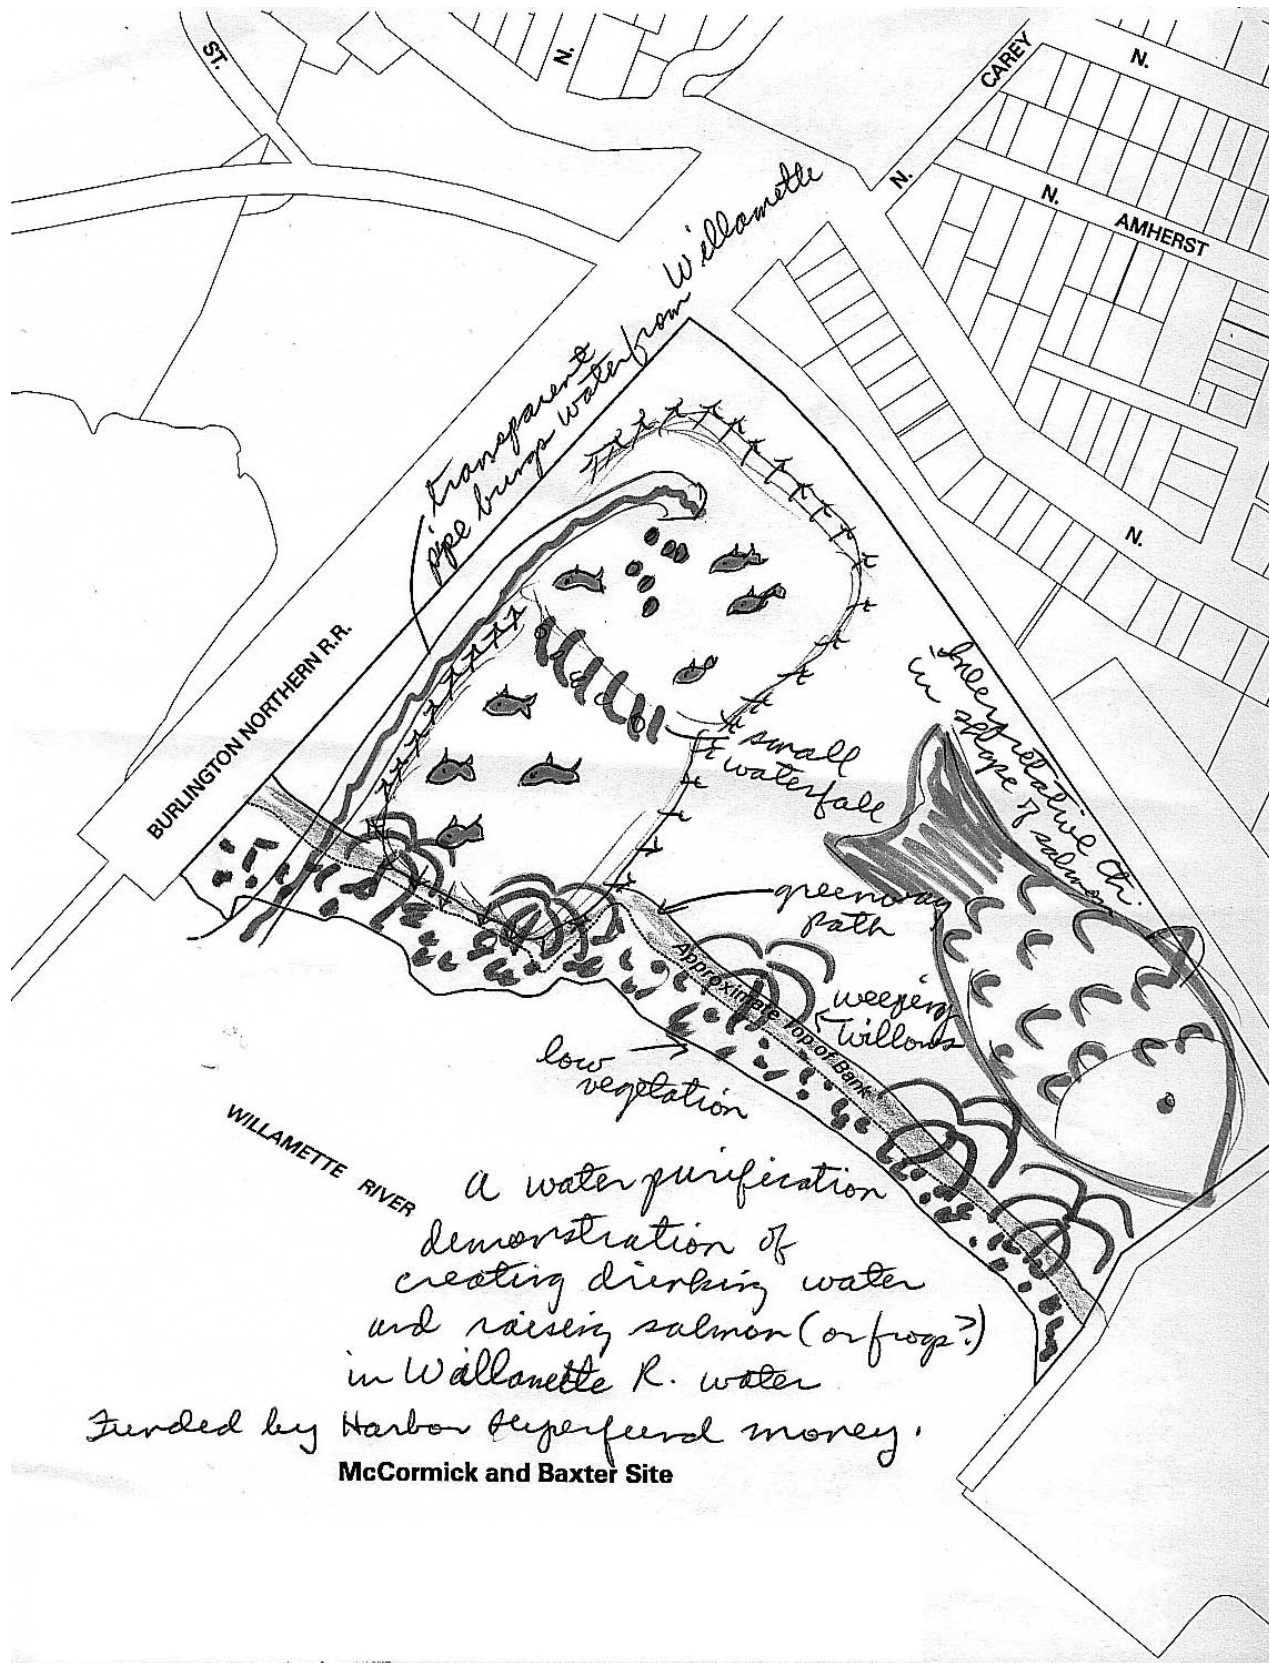 ST.
N.
CAREY
N.
N.
N.
AMHERST
N.
BURLINGTON NORTHERN R.R.
transparent
pipe brings water from Willamette
small
waterfall
Interpretative Ctr.
in shape of salmon
greenway
path
Approximate Top of Bank
weeping
willows
low
vegetation
WILLAMETTE RIVER
A water purification
demonstration of
creating drinking water
and raising salmon (or frogs?)
in Willamette R. water
Funded by Harbor Superfund money.
McCormick and Baxter Site